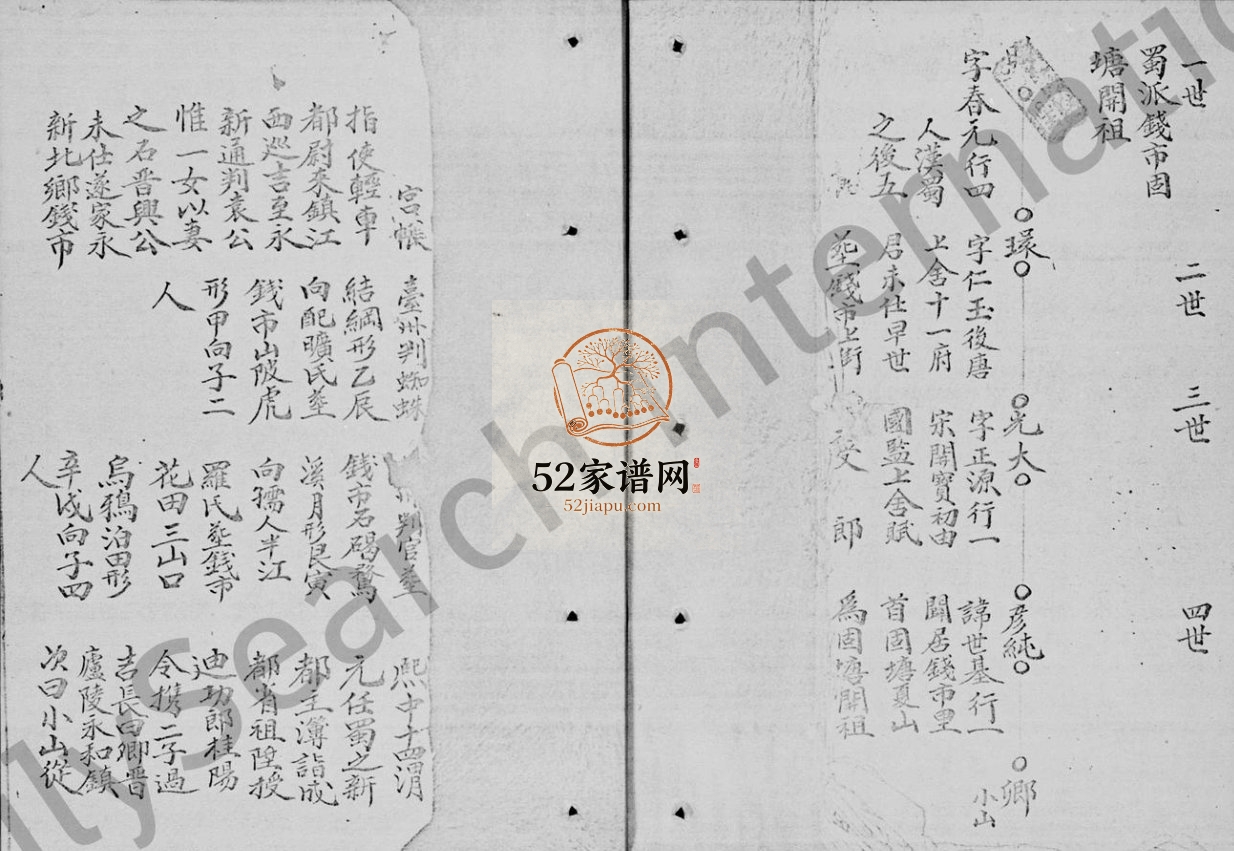 一世
二世
三世
四世
蜀派錢市固
塘開祖
時
字春元行四
人漢蜀
之後五
環
字仁玉後唐
上舍十一府
君未仕早世
塟錢市上街
光大
字正源行一
宋開寳初由
國監上舍賦
受郎
彦純
諱世基行一
開居錢市里
首固塘夏山
爲固塘開祖
卿
小山
宫帳
指使輕車
都尉来鎮江
西廵吉至永
新通判袁公
惟一女以妻
之石晋興公
未仕遂家永
新北鄉錢市
臺州判蜘蛛
結網形乙辰
向配曠氏塟
錢市山陂虎
形甲向子二
人
州判官塟
錢市石碣鶩
溪月形艮寅
向孺人半江
羅氏塟錢市
花田三山口
烏鴉泊田形
辛戌向子四
人
熙中十四渭
元任蜀之新
都主簿詣成
都省祖陞授
迪功郎桂陽
令携二子過
吉長曰卿晋
廬陵永和鎮
次曰小山從
52家谱网
52jiapu.com
ilySearch International